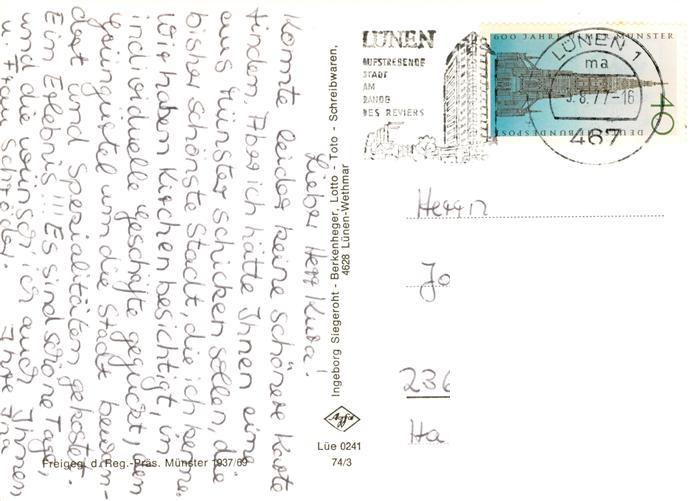 Lieber Herr Kuba!
Konnte leider keine schönere Karte
finden, Aber ich hätte Ihnen eine
aus Münster schicken sollen, die
bisher schönste Stadt, die ich kenne.
Wir haben Kirchen besichtigt, in
individuelle Geschäfte geguckt, den
Grüngürtel um die Stadt bewun-
dert und Spezialitäten gekostet.
Ein Erlebnis!!!! Es sind schöne Tage,
und die wünsch' ich auch Ihnen
u. Frau Schröder. Ihre Ina
Freigegl d. Reg.-Präs. Münster 1937/69
Ingeborg Siegeroht - Berkenheger, Lotto - Toto - Schreibwaren,
4628 Lünen-Wethmar
Agfa
Lüe 0241
74/3
LÜNEN
AUFSTREBENDE
STADT
AM
RANDE
DES REVIERS
LÜNEN 1
ma
.8.77-16
467
600 JAHRE MÜNSTER
DEUTSCHE BUNDESPOST
40
Herrn
Jo
236
Ha